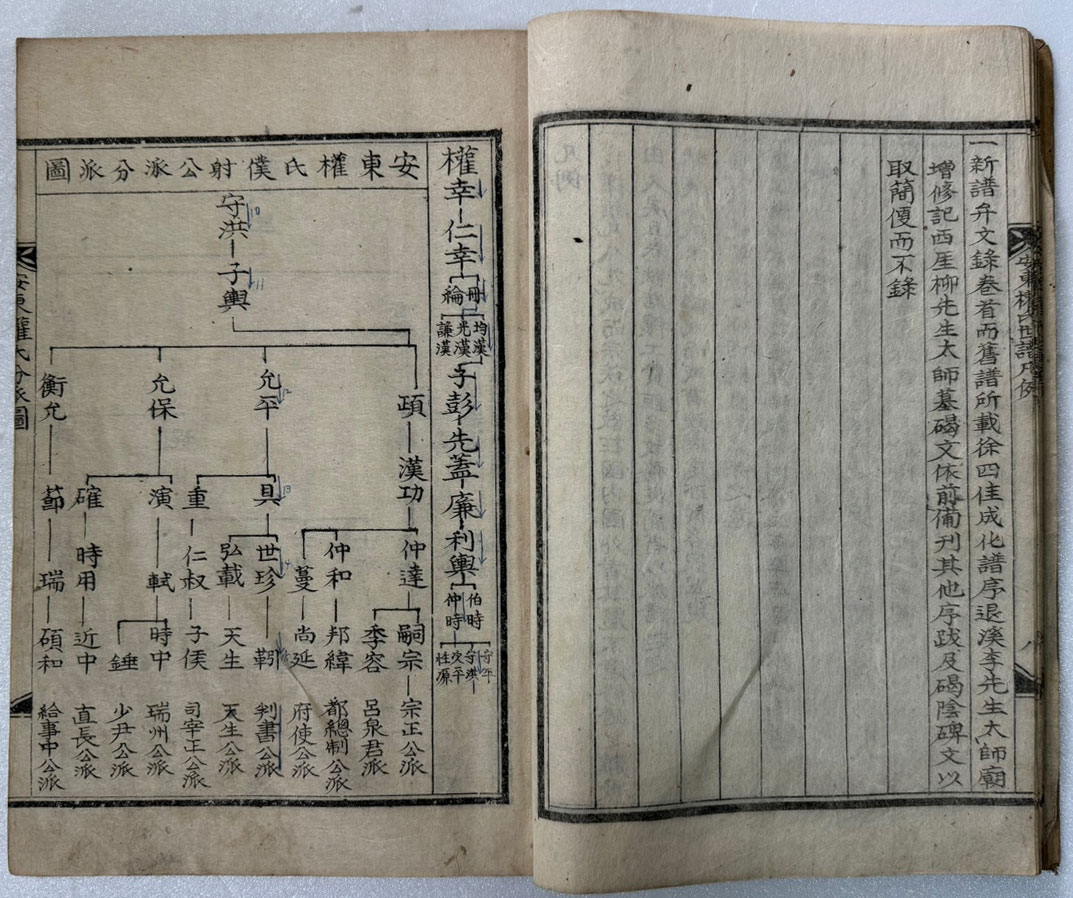 一新譜弁文錄卷首而舊譜所載徐四佳成化譜序退溪李先生太師廟
增修記西厓柳先生太師墓碣文依前備刊其他序跋及碣陰碑文以
取簡便而不錄
安東權氏世譜凡例
八
權幸 仁幸
冊
綸
均漢
光漢
謙漢
子彭 先蓋 廉 利輿
伯時
仲時
守年
守洪
守平
性源
安東權氏僕射公派分派圖
守洪 子輿
10
11
頙 漢功
仲達
仲和
蔓
嗣宗 宗正公派
季容 呂泉君派
邦緯 都總制公派
尚延 府使公派
允平
12
具
13
世珍
14
靷 判書公派
弘載 天生 天生公派
重 仁叔 子侯 司宰正公派
允保
演 軾
時中 瑞州公派
錘 少尹公派
確 時用 近中 直長公派
衡允 節 瑞 碩和 給事中公派
安東權氏分派圖